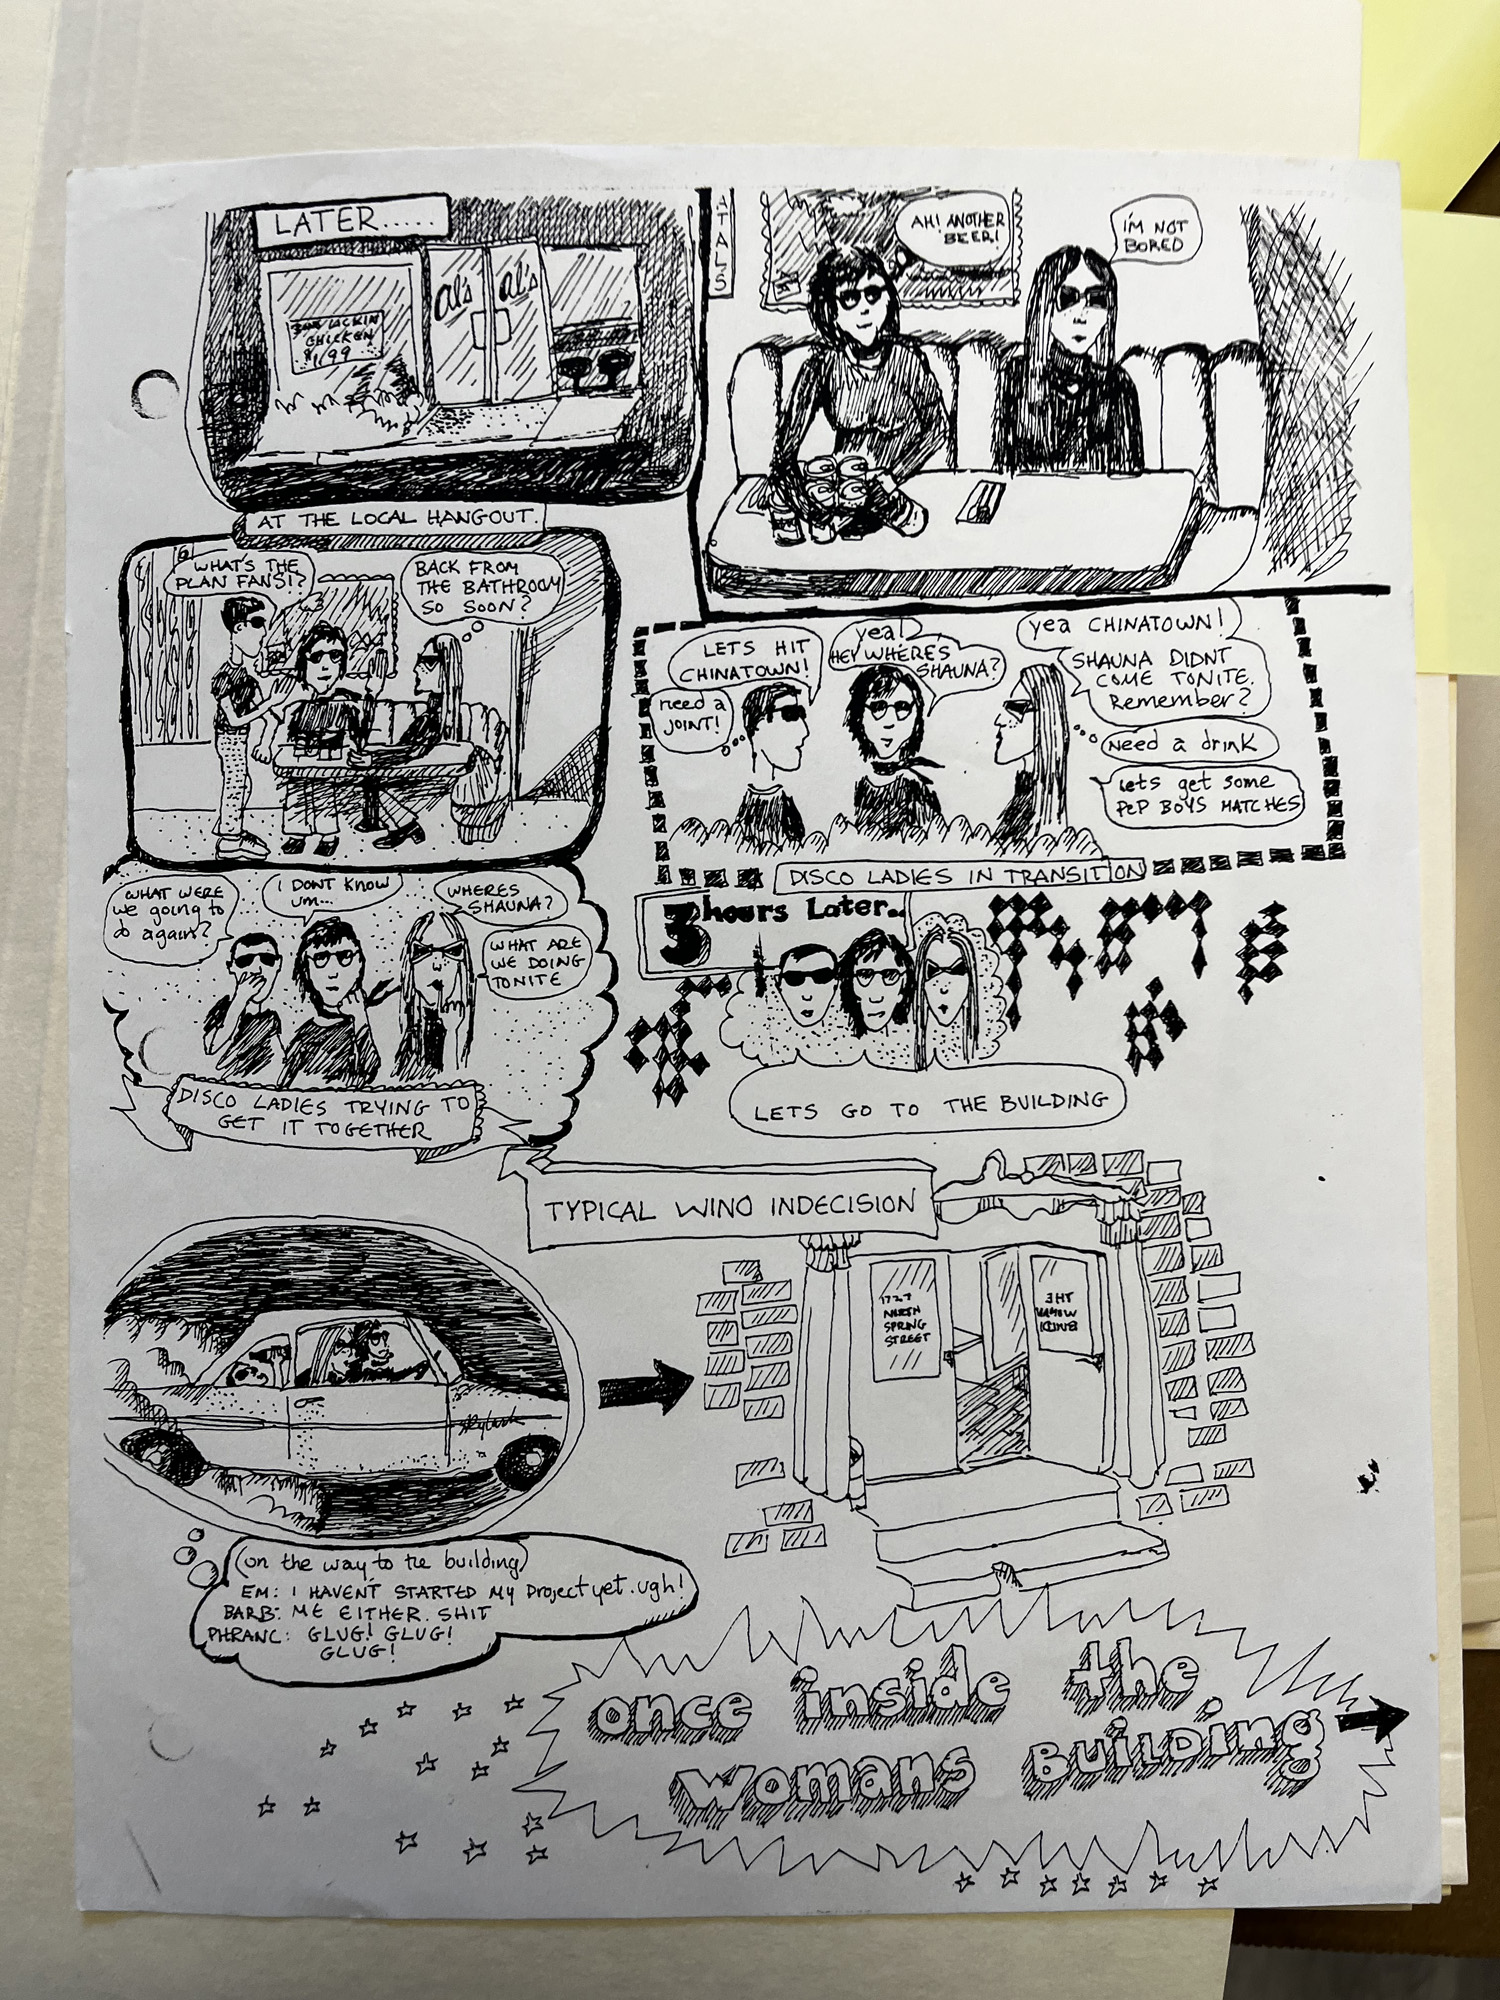 LATER......
al's al's
CHICKEN
$1.99
AT THE LOCAL HANGOUT.
ATALS
AH! ANOTHER
BEER!
I'M NOT
BORED
WHAT'S THE
PLAN FANS!?
BACK FROM
THE BATHROOM
SO SOON?
LETS HIT
CHINATOWN!
need a
JOINT!
yea!
HEY WHERE'S
SHAUNA?
yea CHINATOWN!
SHAUNA DIDNT
COME TONITE.
Remember?
Need a drink
Lets get some
PEP BOYS MATCHES
DISCO LADIES IN TRANSITION
WHAT WERE
we going to
do again?
I DONT KNOW
um...
WHERES
SHAUNA?
WHAT ARE
WE DOING
TONITE
DISCO LADIES TRYING TO
GET IT TOGETHER
3 hours Later..
LETS GO TO THE BUILDING
TYPICAL WINO INDECISION
skylark
1727
NORTH
SPRING
STREET
THE
WOMANS
BUILDI
(on the way to the building)
EM: I HAVEN'T STARTED MY Project yet. ugh!
BARB: ME EITHER. SHIT
PHRANC: GLUG! GLUG!
GLUG!
once inside the
Womans BUILDING